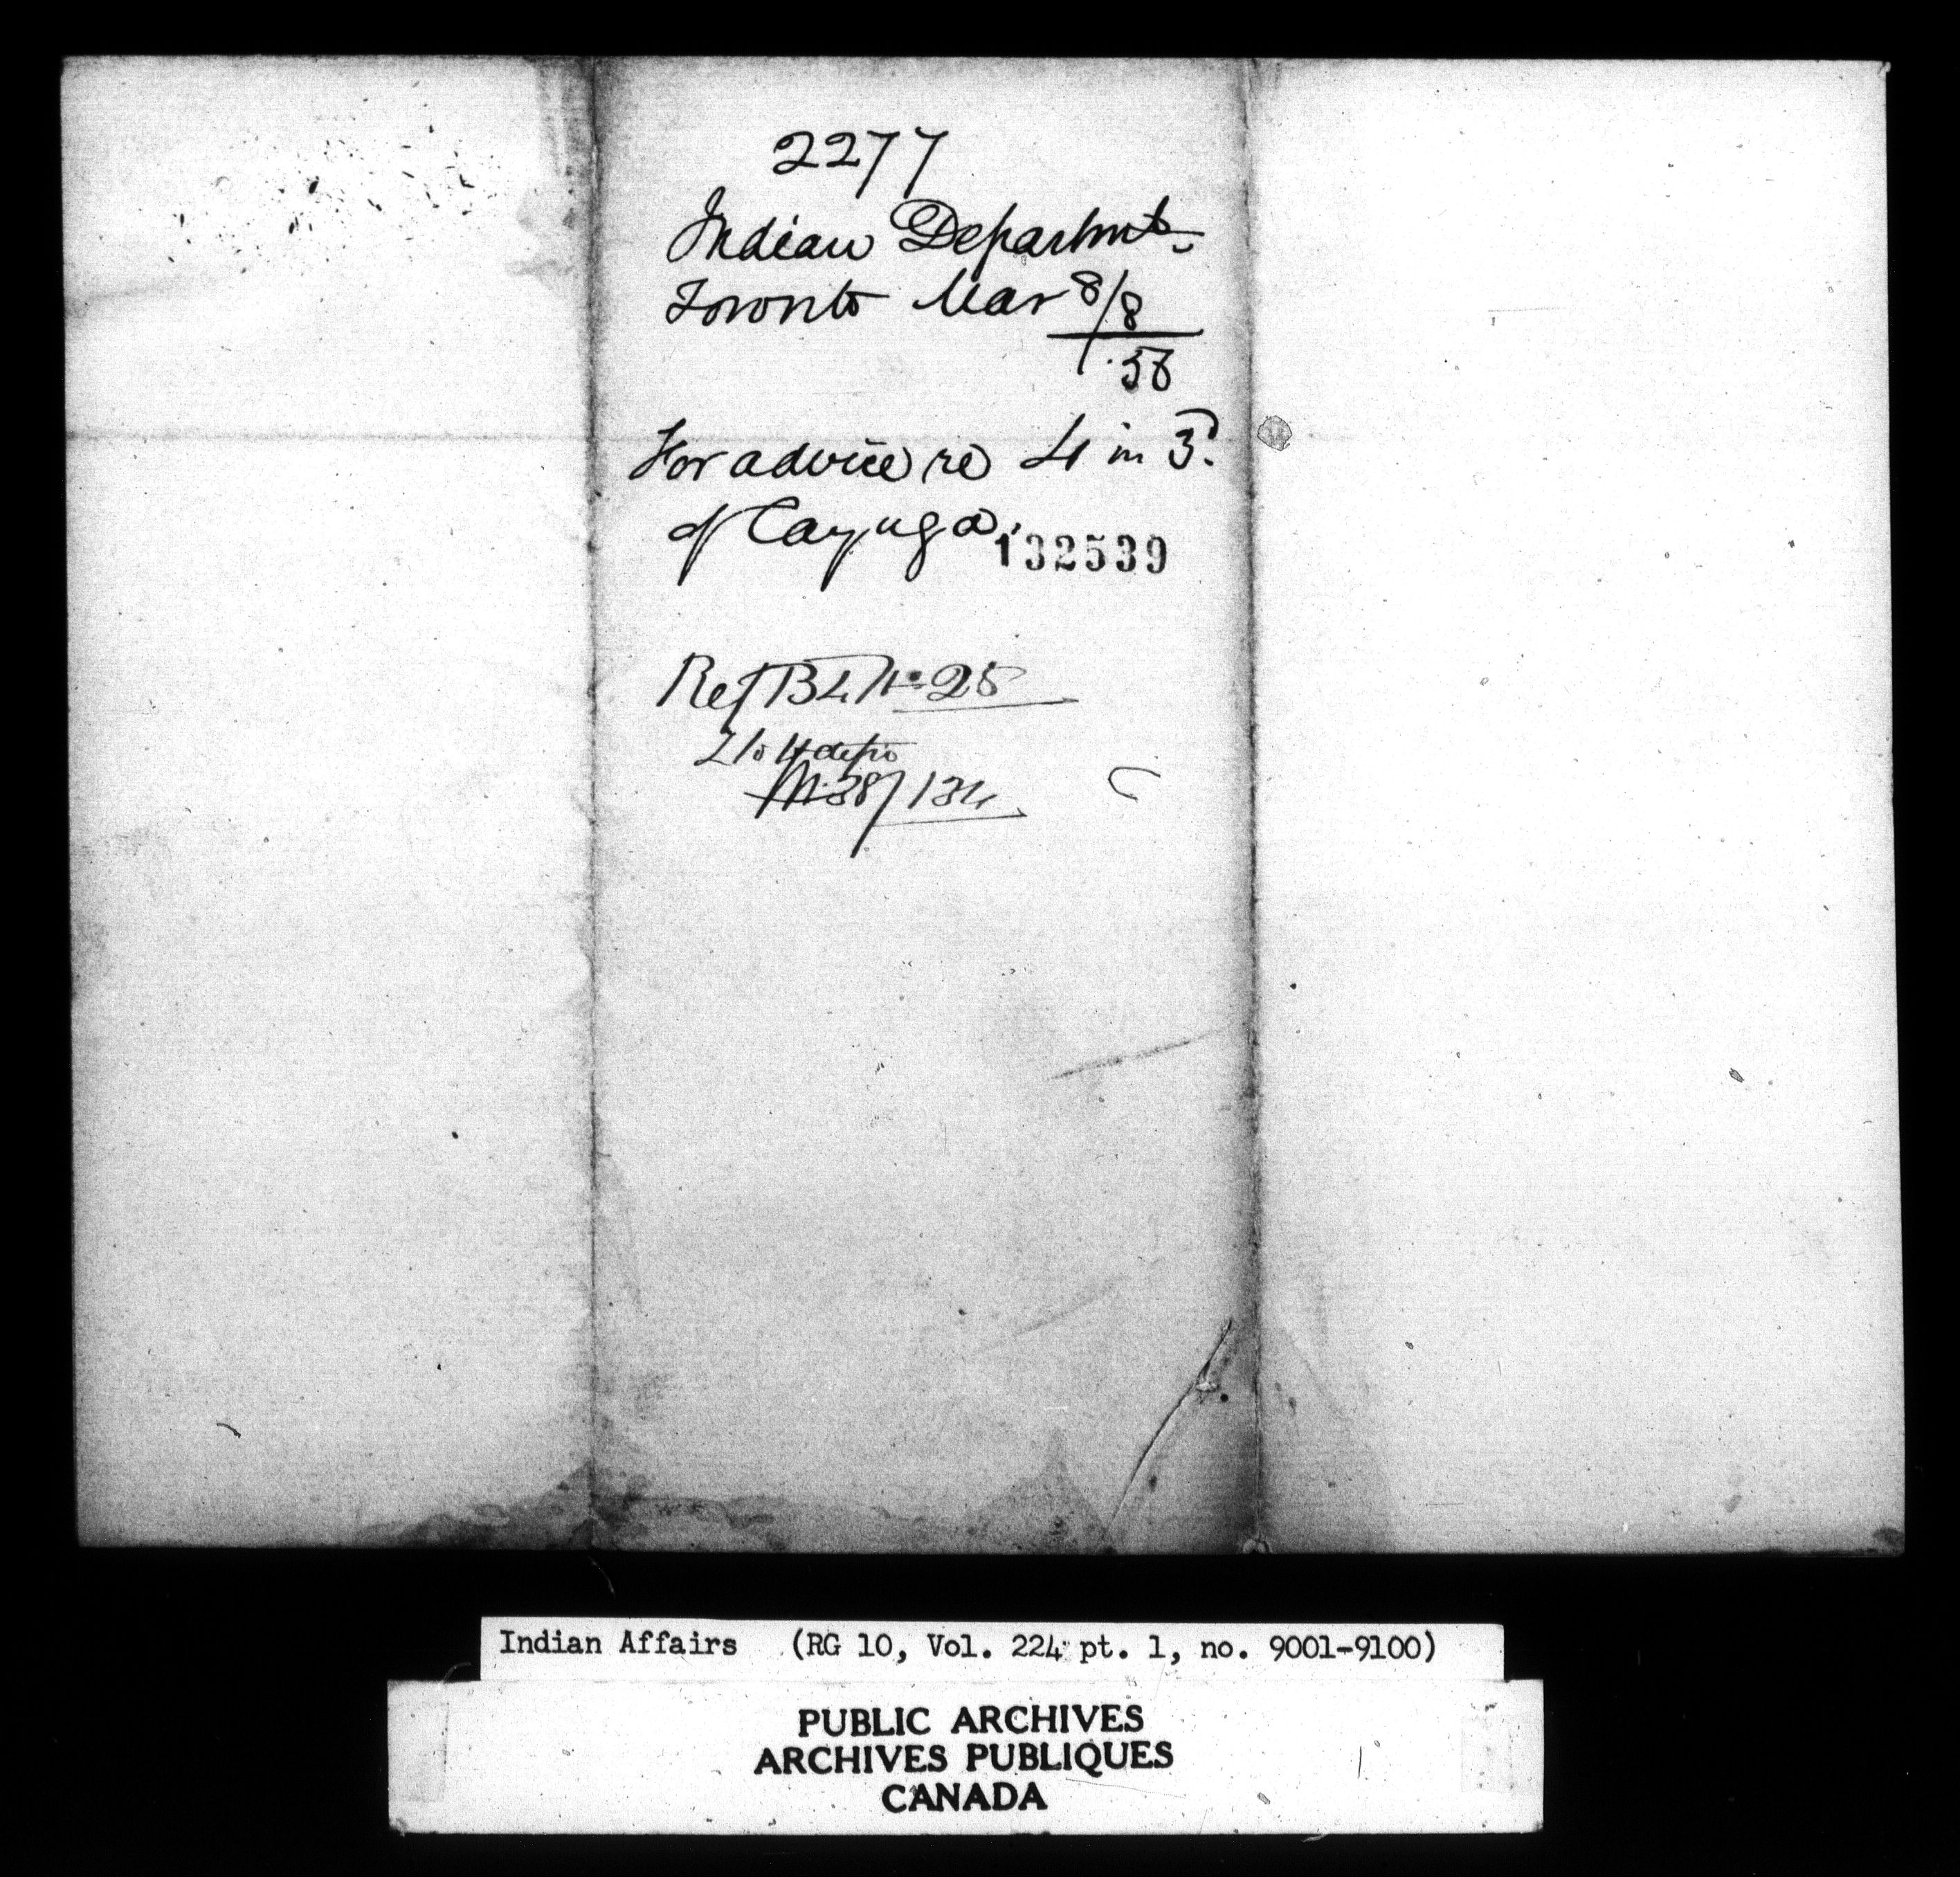 2277
Indian Departmt
Toronto Mar 8/8
58
For advice re 4 in 3d.
of Cayuga.
132539
Ref B 4 No 25
134
Indian Affairs (RG 10, Vol. 224 pt. 1, no. 9001-9100)
PUBLIC ARCHIVES
ARCHIVES PUBLIQUES
CANADA